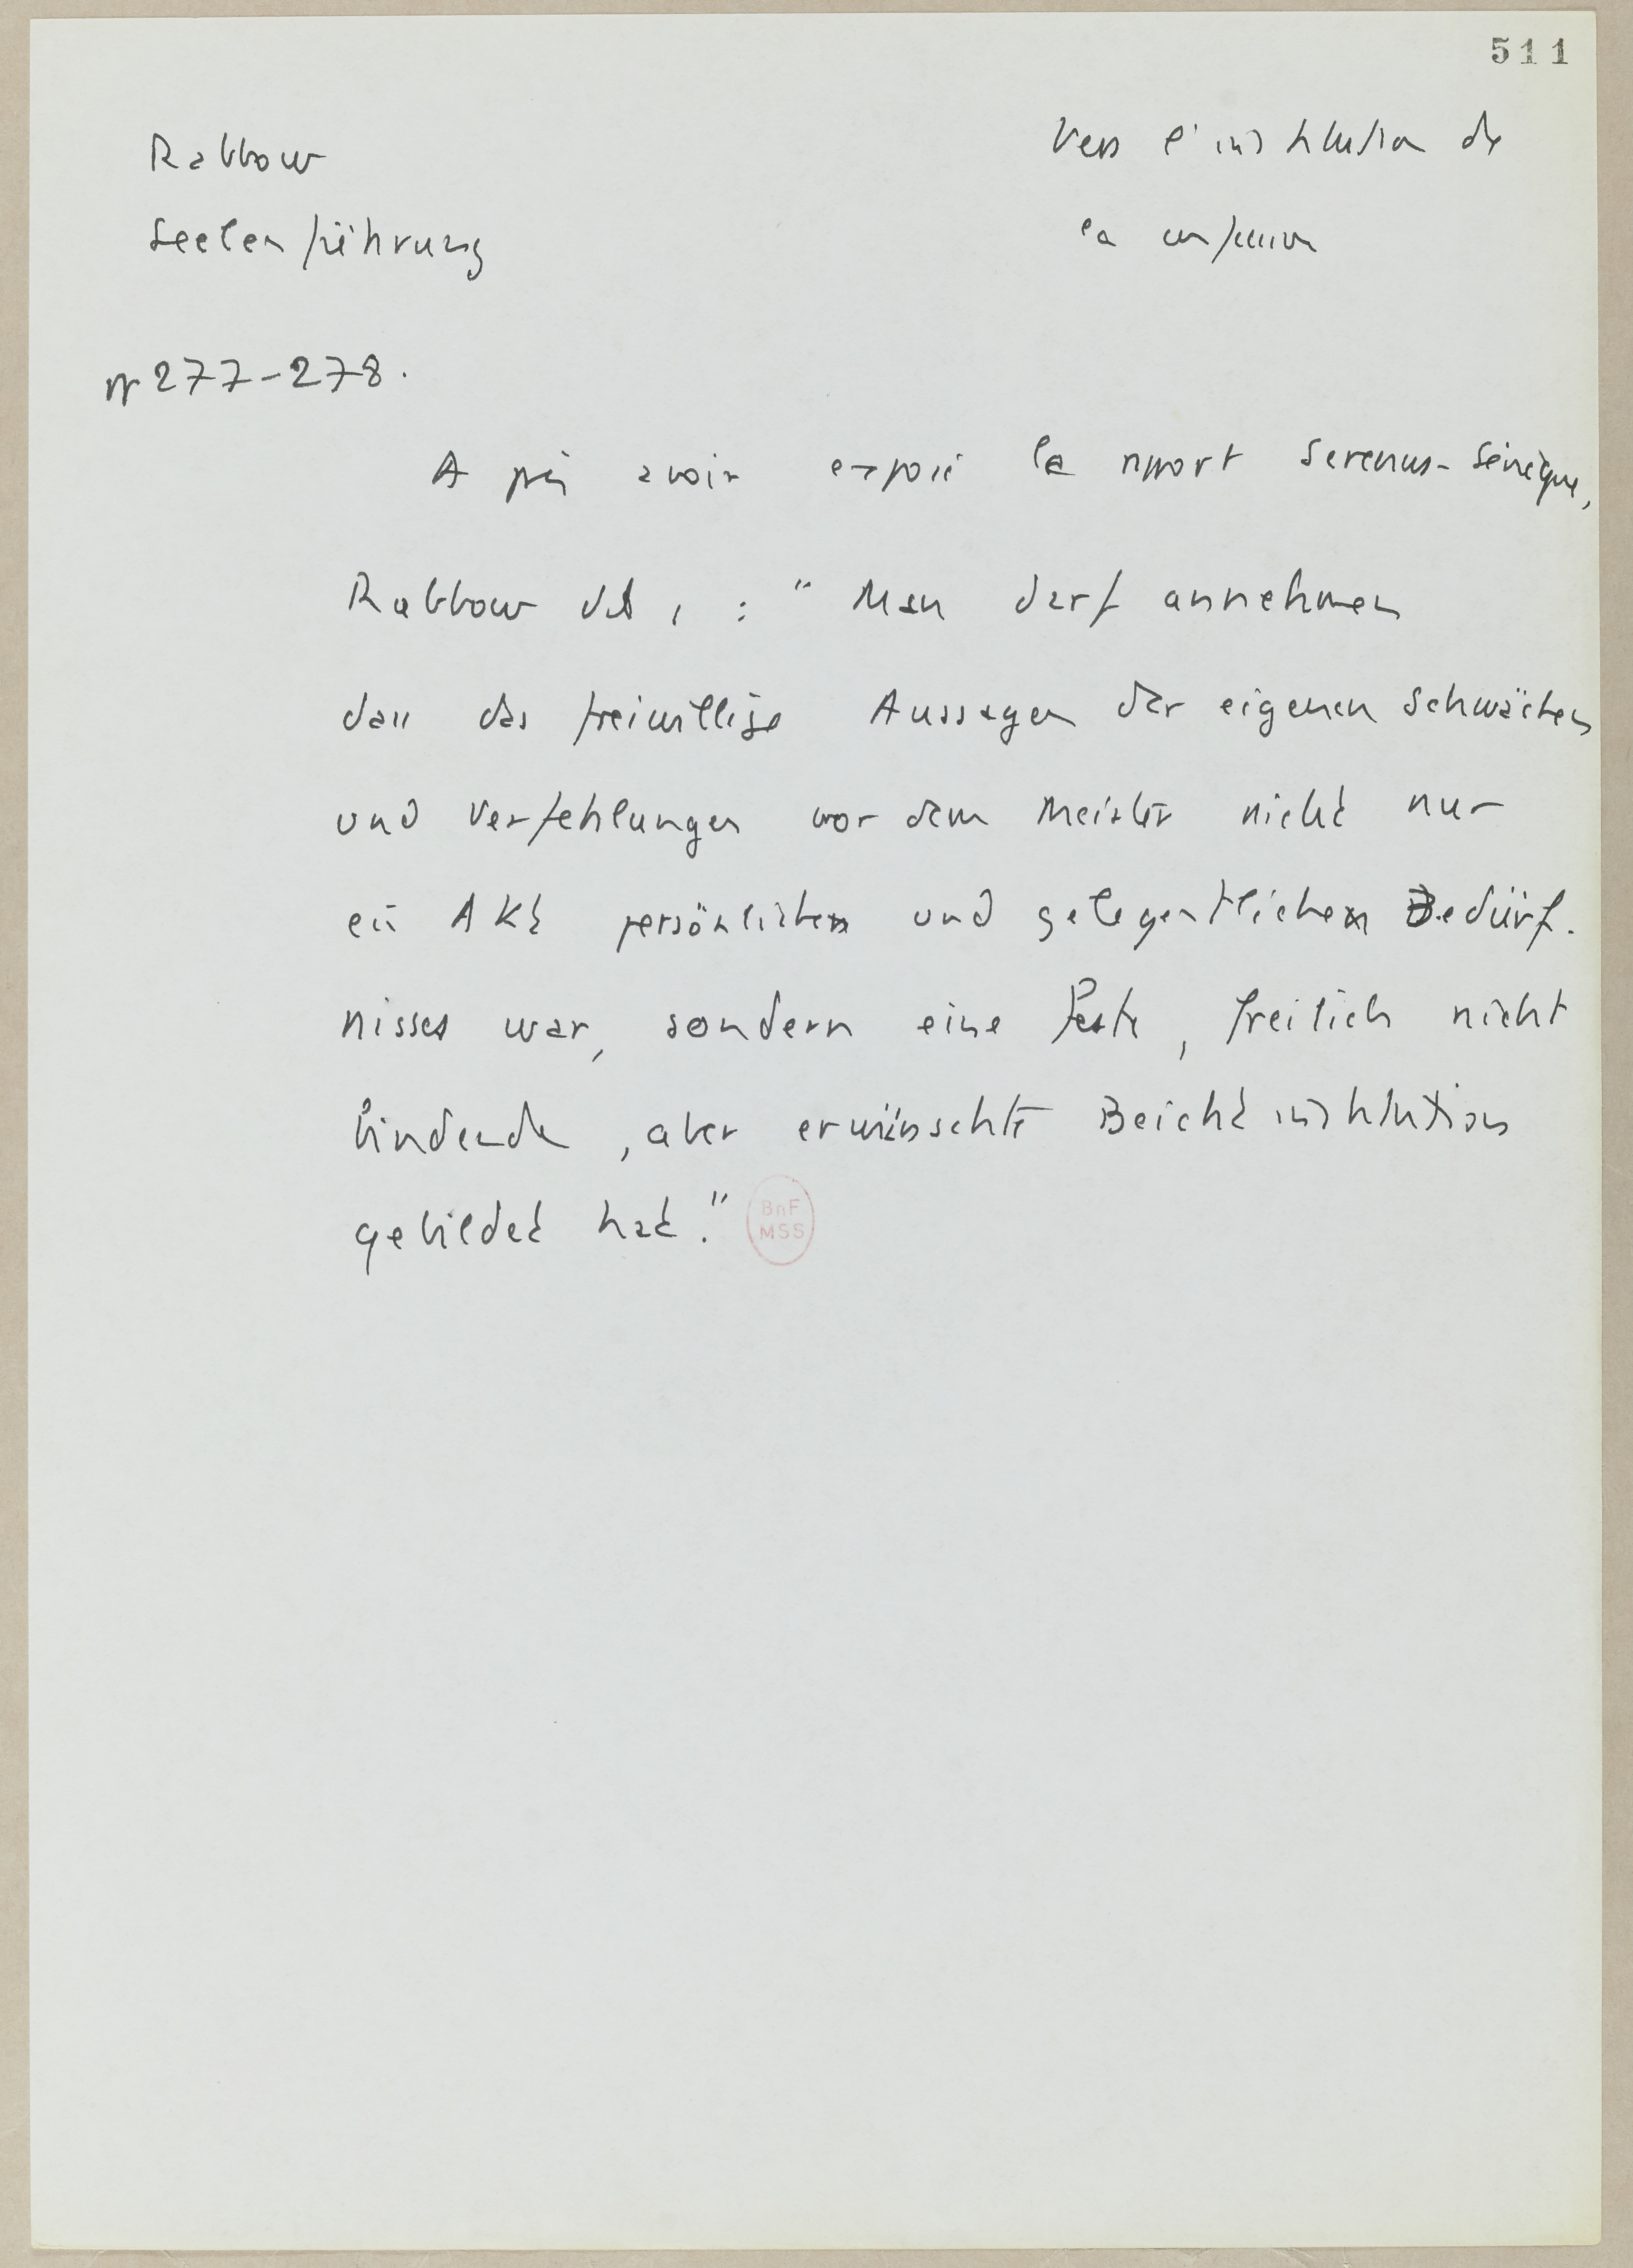 511
Rabbow
Seelenführung
Vers l'institution de
la confession
pp 277-278.
Après avoir exposé le rapport Serenus-Sénèque,
Rabbow dit, : " Man darf annehmen
dass das freiwillige Aussagen der eigenen Schwächen
und Verfehlungen vor dem Meister nicht nur
ein Akt persönlichen und gelegentlichen Bedürf-
nisses war, sondern eine feste, freilich nicht
bindende, aber erwünschte Beichtinstitution
gebildet hat."
BnF
MSS